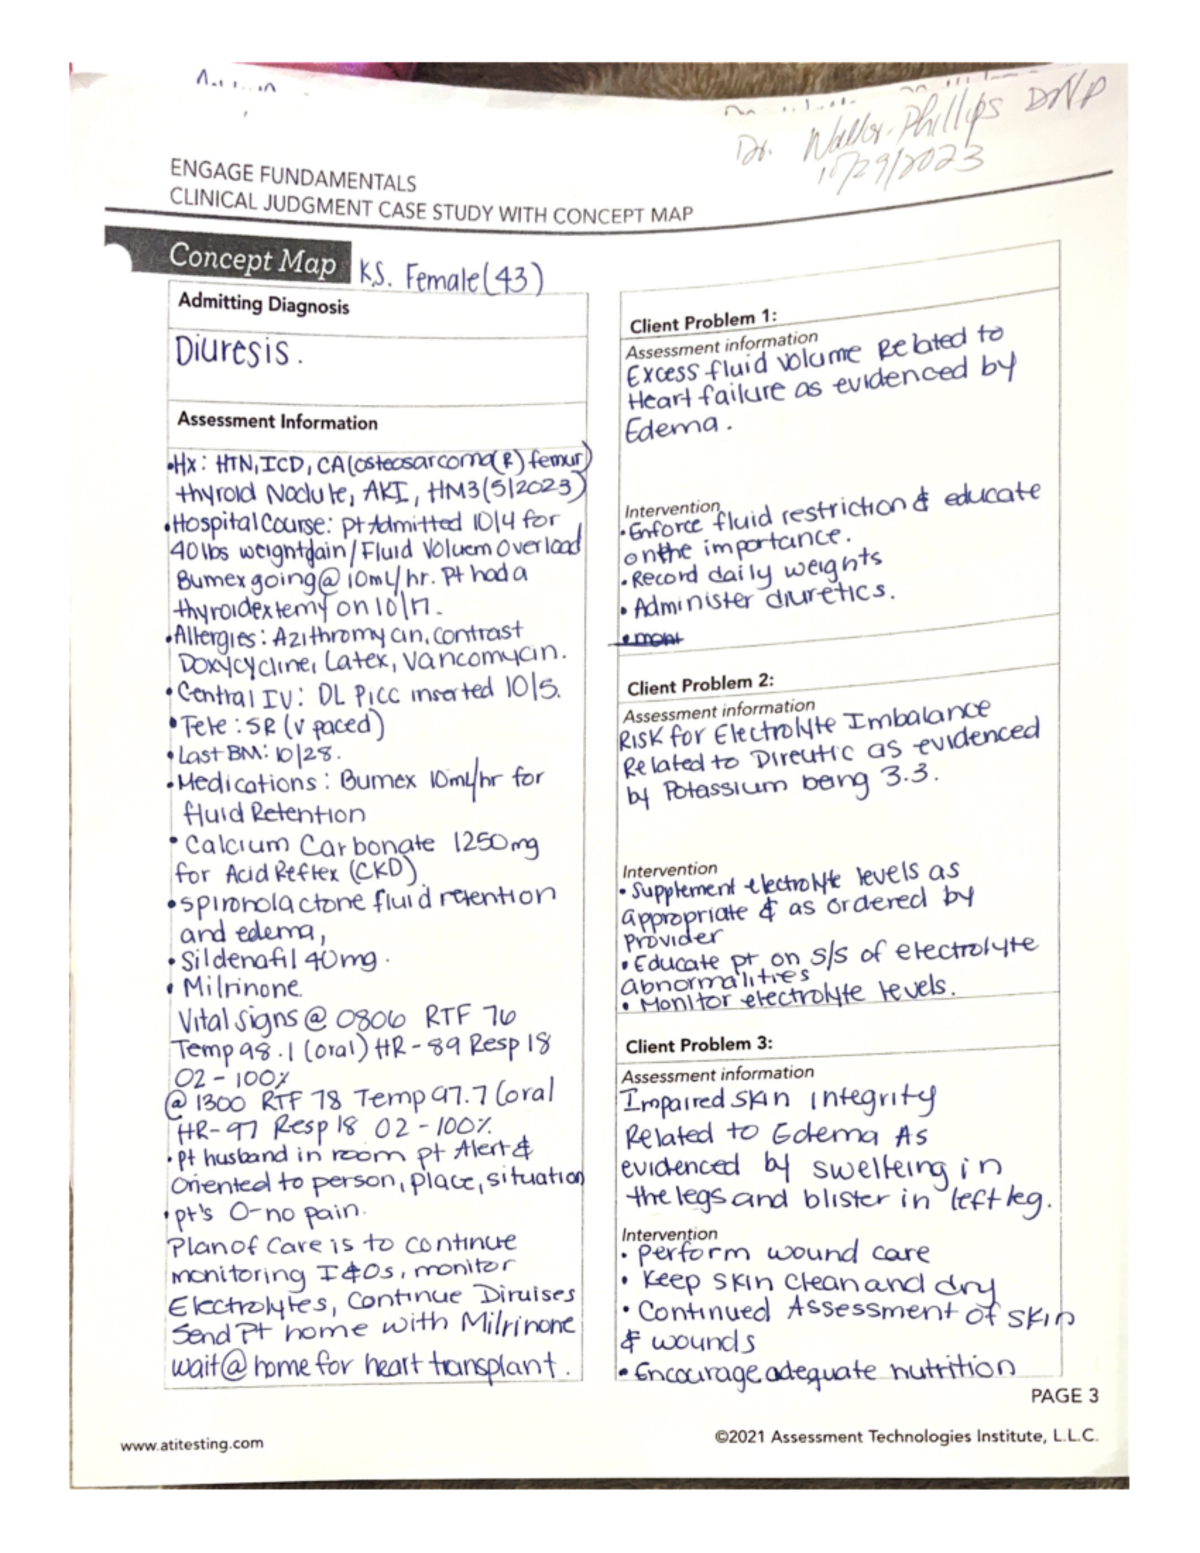 Dr. Waller-Phillips DNP
10/29/2023
ENGAGE FUNDAMENTALS
CLINICAL JUDGMENT CASE STUDY WITH CONCEPT MAP
Concept Map K.S. Female (43)
Admitting Diagnosis
Diuresis.
Assessment Information
•Hx: HTN, ICD, CA (osteosarcoma (R) femur)
thyroid Nodule, AKI, HM3 (5/2023)
•Hospital Course: pt Admitted 10/4 for
40lbs weightgain/Fluid Voluem Overload
Bumex going @ 10mL/hr. Pt had a
thyroidextemy on 10/17.
•Allergies: Azithromycin, contrast
Doxycycline, Latex, Vancomycin.
•Central IV: DL Picc inserted 10/5.
•Tele: SR (V paced)
•Last BM: 10/28.
•Medications: Bumex 10mL/hr for
fluid Retention
•Calcium Carbonate 1250mg
for Acid Reflex (CKD)
•spironolactone fluid retention
and edema,
•Sildenafil 40mg.
•Milrinone.
Vital signs @ 0806 RTF 76
Temp 98.1 (oral) HR-89 Resp 18
O2-100%
@ 1300 RTF 78 Temp 97.7 (oral
HR-97 Resp 18 O2-100%.
•pt husband in room pt Alert &
oriented to person, place, situation
•pt's 0-no pain.
Plan of Care is to continue
monitoring I&Os, monitor
Electrolytes, Continue Diruises
Send Pt home with Milrinone
wait @ home for heart transplant.
Client Problem 1:
Assessment information
Excess fluid volume Related to
Heart failure as evidenced by
Edema.
Intervention
•Enforce fluid restriction & educate
on the importance.
•Record daily weights
•Administer diuretics.
Client Problem 2:
Assessment information
Risk for Electrolyte Imbalance
Related to Direutic as evidenced
by Potassium being 3.3.
Intervention
•Supplement electrolyte levels as
appropriate & as ordered by
Provider
•Educate pt on s/s of electrolyte
abnormalities
•Monitor electrolyte levels.
Client Problem 3:
Assessment information
Impaired skin integrity
Related to Edema As
evidenced by swelleing in
the legs and blister in left leg.
Intervention
•Perform wound care
•Keep skin clean and dry
•Continued Assessment of skin
& wounds
•Encourage adequate nutrition
PAGE 3
www.atitesting.com
©2021 Assessment Technologies Institute, L.L.C.